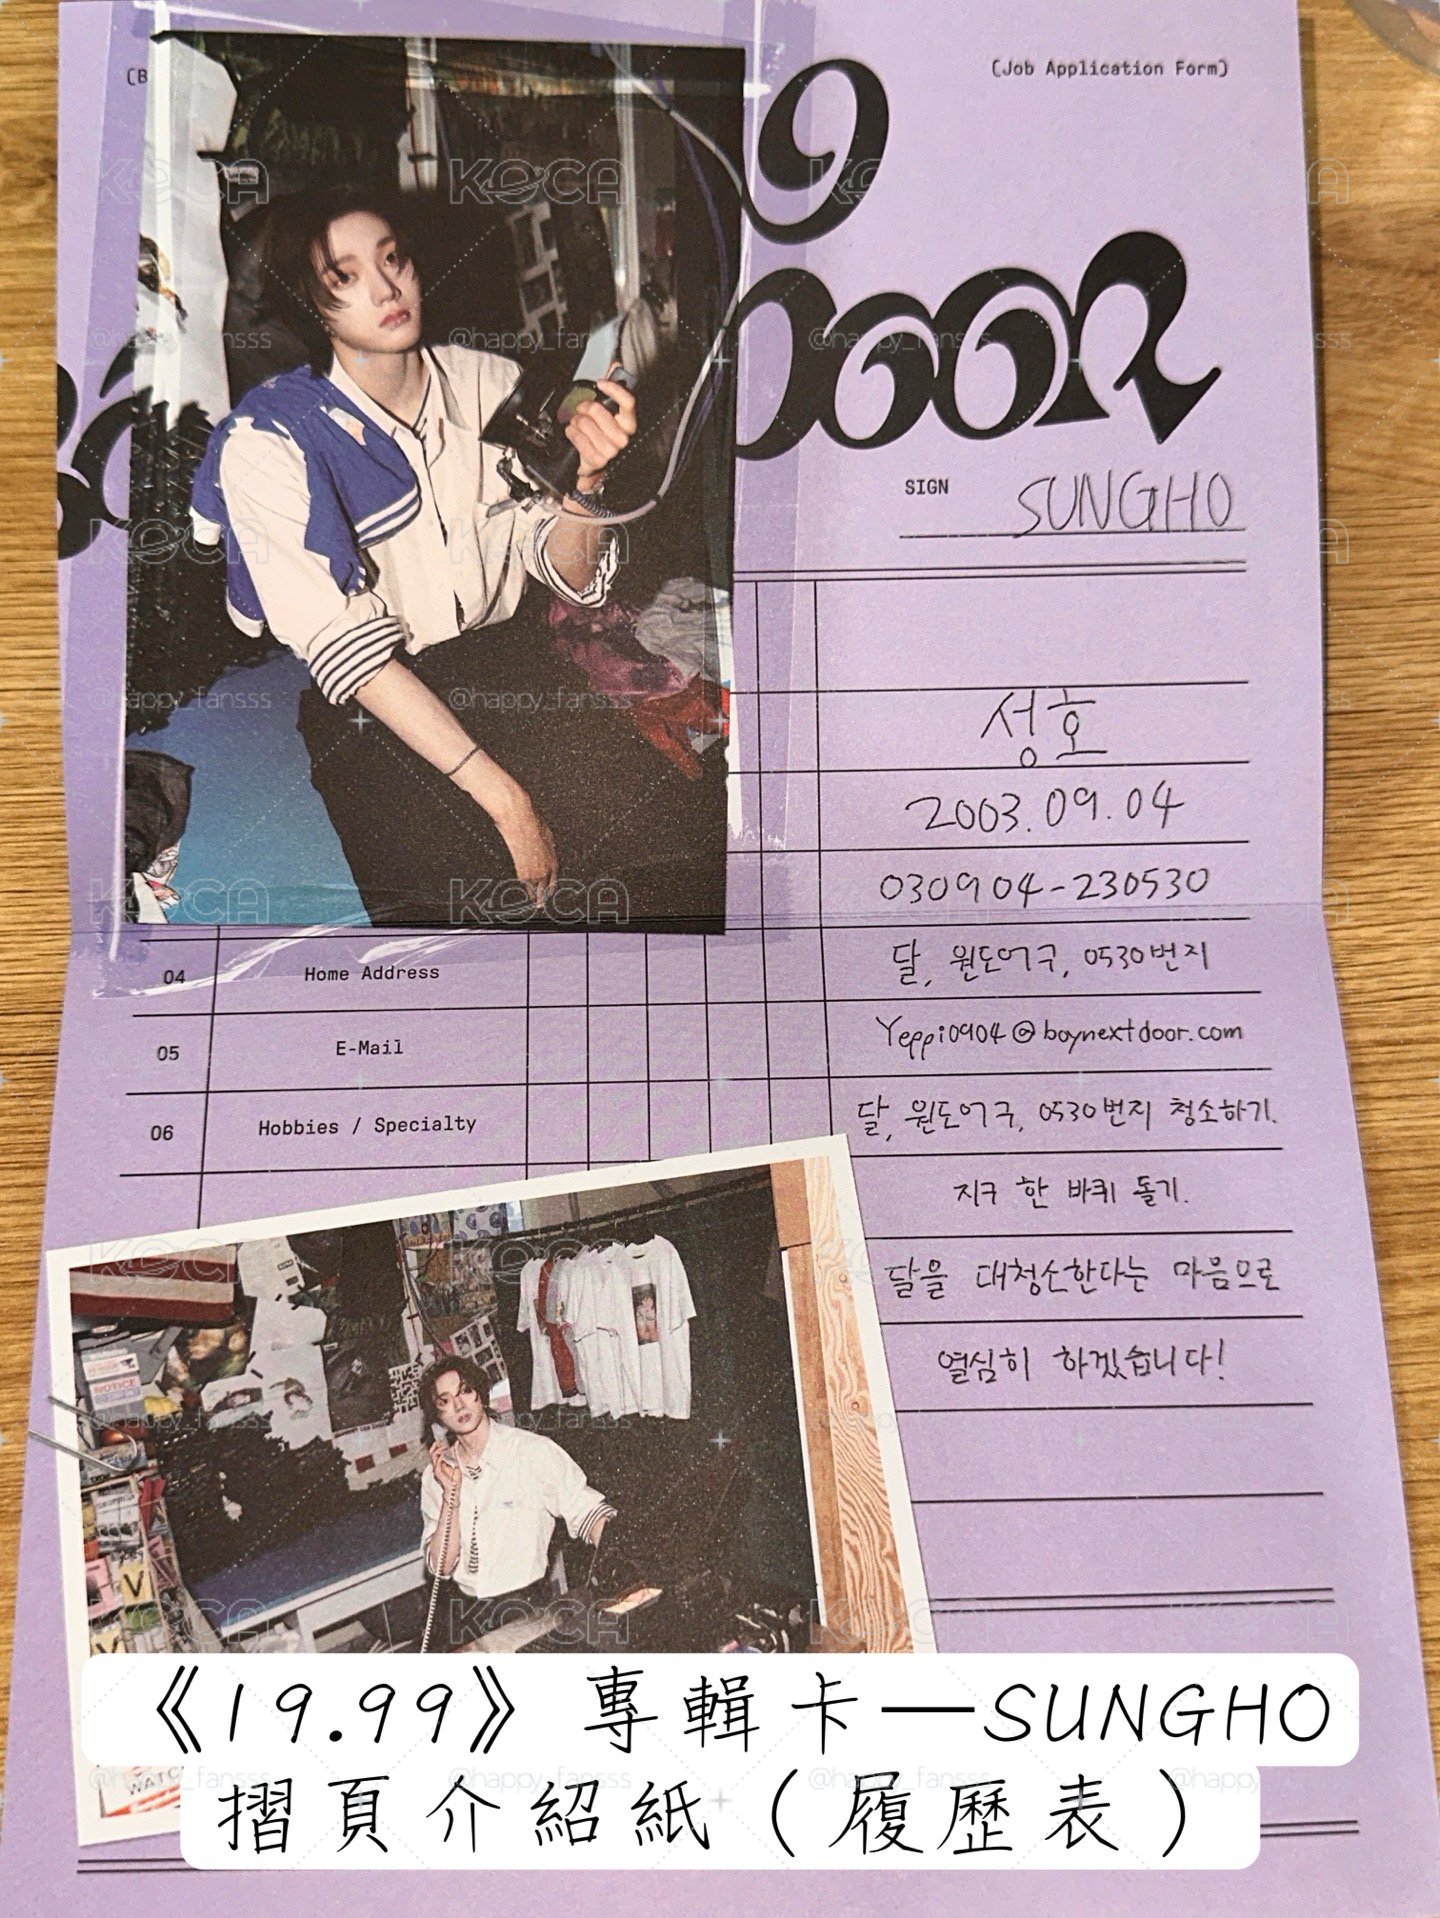 (Job Application Form)
SIGN SUNGHO
성호
2003.09.04
030904-230530
04 Home Address 달, 원도어구, 0530번지
05 E-Mail Yeppi0904@boynextdoor.com
06 Hobbies / Specialty 달, 원도어구, 0530번지 청소하기.
지구 한 바퀴 돌기.
달을 대청소한다는 마음으로
열심히 하겠습니다!
NOTICE
V
《19.99》專輯卡—SUNGHO
摺頁介紹紙（履歷表）
KOCA
@happy_fansss